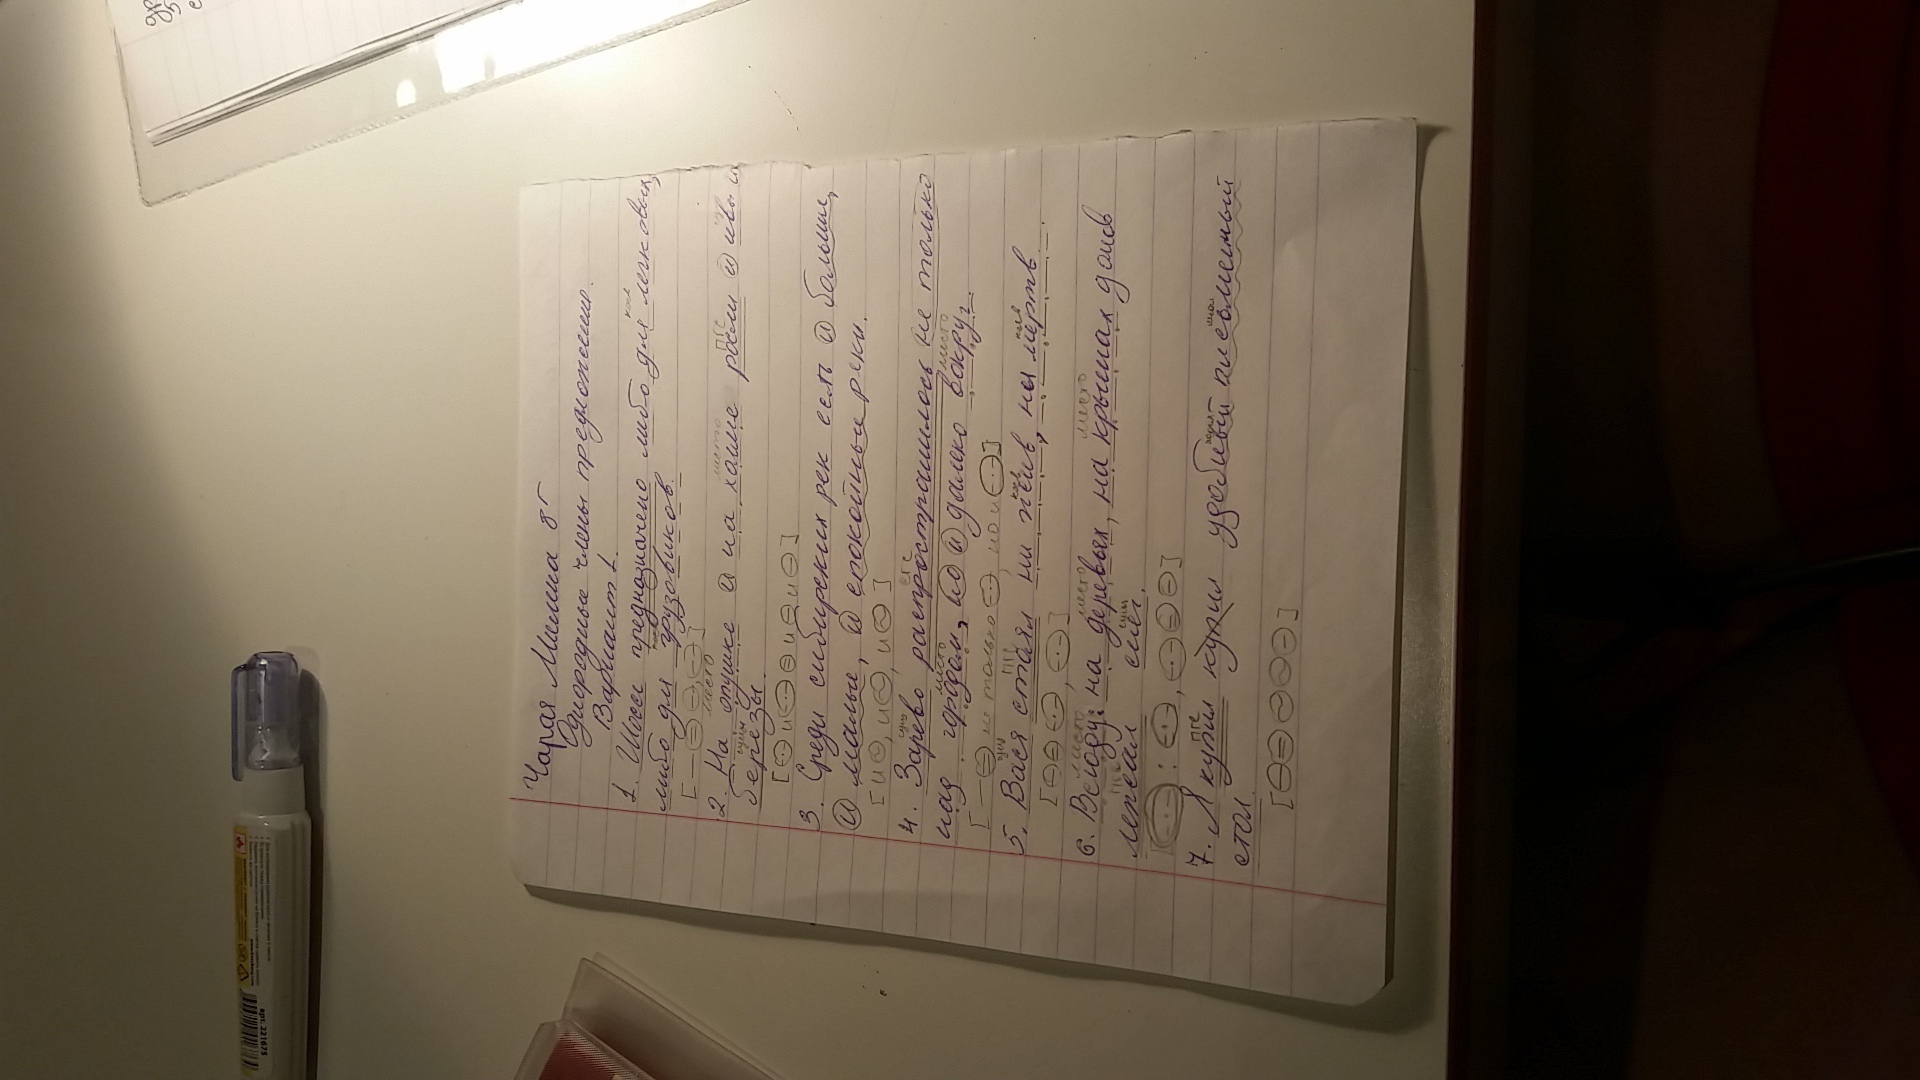 Чарая Милла 8г
Однородные члены предложения.
Вариант 1.
1. Шоссе предназначено либо для легковых,
либо для грузовиков.
2. На опушке и на холме росли и ивы и
берёзы.
[⊖ и ⊖ ⊖ и ⊖ и ⊖]
3. Среди сибирских рек есть и большие,
и малые, и спокойные реки.
[и ⊖, и ⊖, и ⊖]
4. Зарево распространилось не только
над городом, но и далеко вокруг.
[— ⊖ не только ⊖, но и ⊖]
5. Вася стоял ни жив, ни мёртв.
6. Всюду: на деревьях, на крышах домов
лежал снег.
7. Я купил купил удобный письменный
стол.
арт. 221675